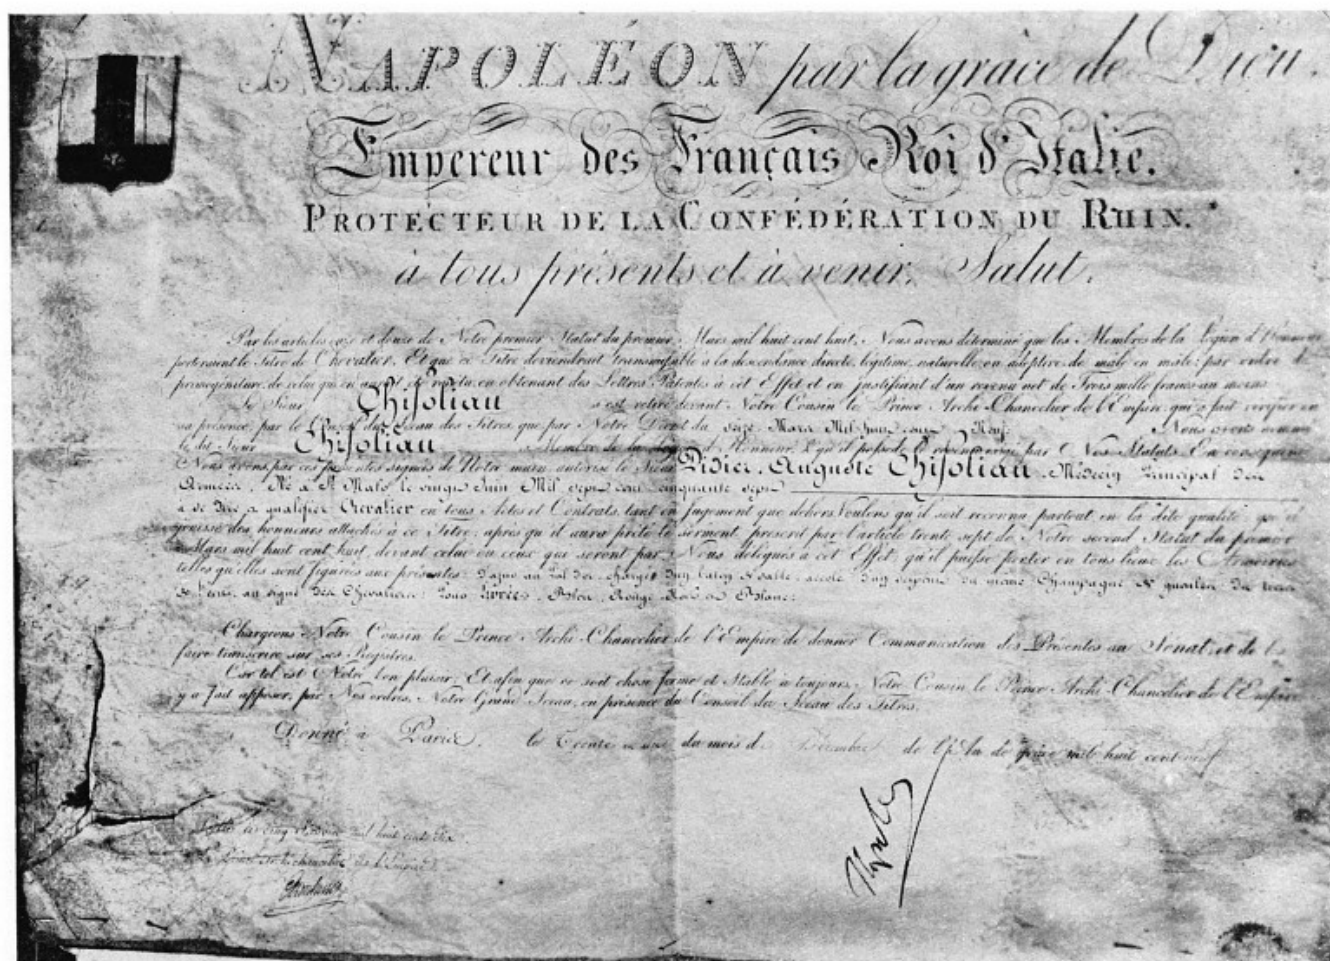 NAPOLÉON par la grâce de Dieu.
Empereur des Français Roi d'Italie.
PROTECTEUR DE LA CONFÉDÉRATION DU RHIN.
à tous présents et à venir, Salut.
Par les articles onze et douze de Notre premier Statut du premier Mars mil huit cent huit, Nous avons déterminé que les Membres de la Légion d'Honneur
porteraient le Titre de Chevalier, Et que ce Titre deviendrait transmissible à la descendance directe, légitime, naturelle ou adoptive de mâle en mâle, par ordre de
primogéniture, de celui qui en aurait été revêtu, en obtenant des Lettres Patentes à cet Effet et en justifiant d'un revenu net de Trois mille francs au moins
Le Sieur Thisoliau s'est retiré devant Notre Cousin le Prince Archi-Chancelier de l'Empire qui a fait vérifier en
sa présence par le Conseil du Sceau des Titres que par Notre Décret du seize Mars Mil huit cent Neuf Nous avons nommé
le dit Sieur Thisoliau Membre de la Légion d'Honneur, & qu'il possède le revenu exigé par Nos Statuts. En conséquence
Nous avons, par ces présentes signées de Notre main, autorisé le Sieur Didier, Auguste Thisoliau, Médecin Principal des
Armées, Né à St Malo le vingt Juin Mil sept cent cinquante sept
à se dire & qualifier Chevalier en tous Actes et Contrats, tant en Jugement que dehors Voulons qu'il soit reconnu partout en la dite qualité; qu'il
jouisse des honneurs attachés à ce Titre, après qu'il aura prêté le serment prescrit par l'article trente sept de Notre second Statut du premier
Mars mil huit cent huit, devant celui ou ceux que seront par Nous délégués à cet Effet; qu'il puisse porter en tous lieux les Armoiries
telles qu'elles sont figurées aux présentes: D'azur au Pal d'or chargé d'un de sable, accolé d'un serpent du même Champagne de gueules du tiers
de l'écu, au signe des Chevaliers: pour Livrées, Bleu, Rouge, Noir et Blanc:
Chargeons Notre Cousin le Prince Archi-Chancelier de l'Empire de donner Communication des Présentes au Sénat, et de les
faire transcrire sur ses Registres.
Car tel est Notre bon plaisir, Et afin que ce soit chose ferme et Stable à toujours, Notre Cousin le Prince Archi-Chancelier de l'Empire
y a fait apposer, par Nos ordres, Notre Grand Sceau, en présence du Conseil du Sceau des Titres.
Donné à Paris, le Trente du mois de Décembre de l'An de grâce mil huit cent neuf
mil huit cent dix
Le Prince archichancelier de l'Empire